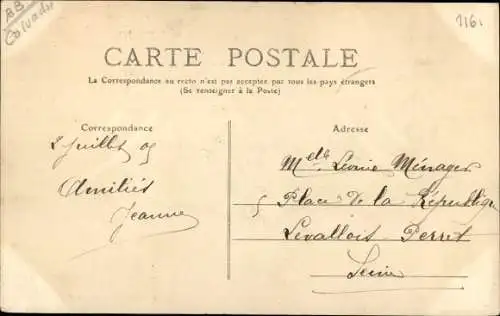 BB
Calvados
1161
CARTE POSTALE
La Correspondance au recto n'est pas acceptée par tous les pays étrangers
(Se renseigner à la Poste)
Correspondance
2 Juillet 05
Amitiés
Jeanne
Adresse
Melle Léonie Ménager
5 Place de la République
Levallois-Perret
Seine